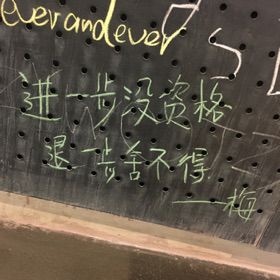 everandever
进一步没资格
退一步舍不得
——梅